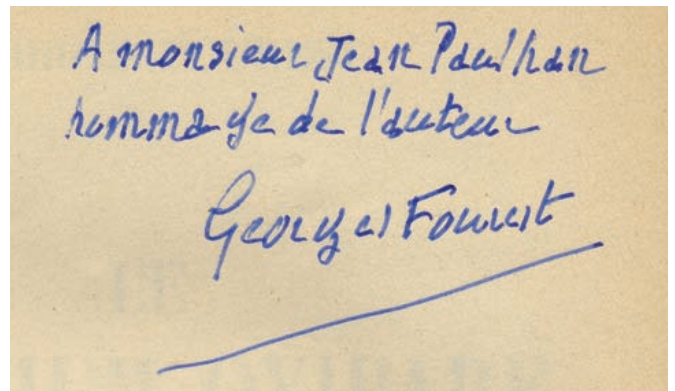 A monsieur Jean Paulhan
hommage de l'auteur
Georges Fourest